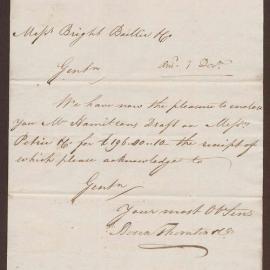 Messrs Bright Baillie & Co
Gentn
We have now the pleasure to enclose
you Mr Hamiltons Draft on Messrs
Petrie & Co for £196.10.10 the receipt of
which please acknowledge to
Gentn
Your most Obt